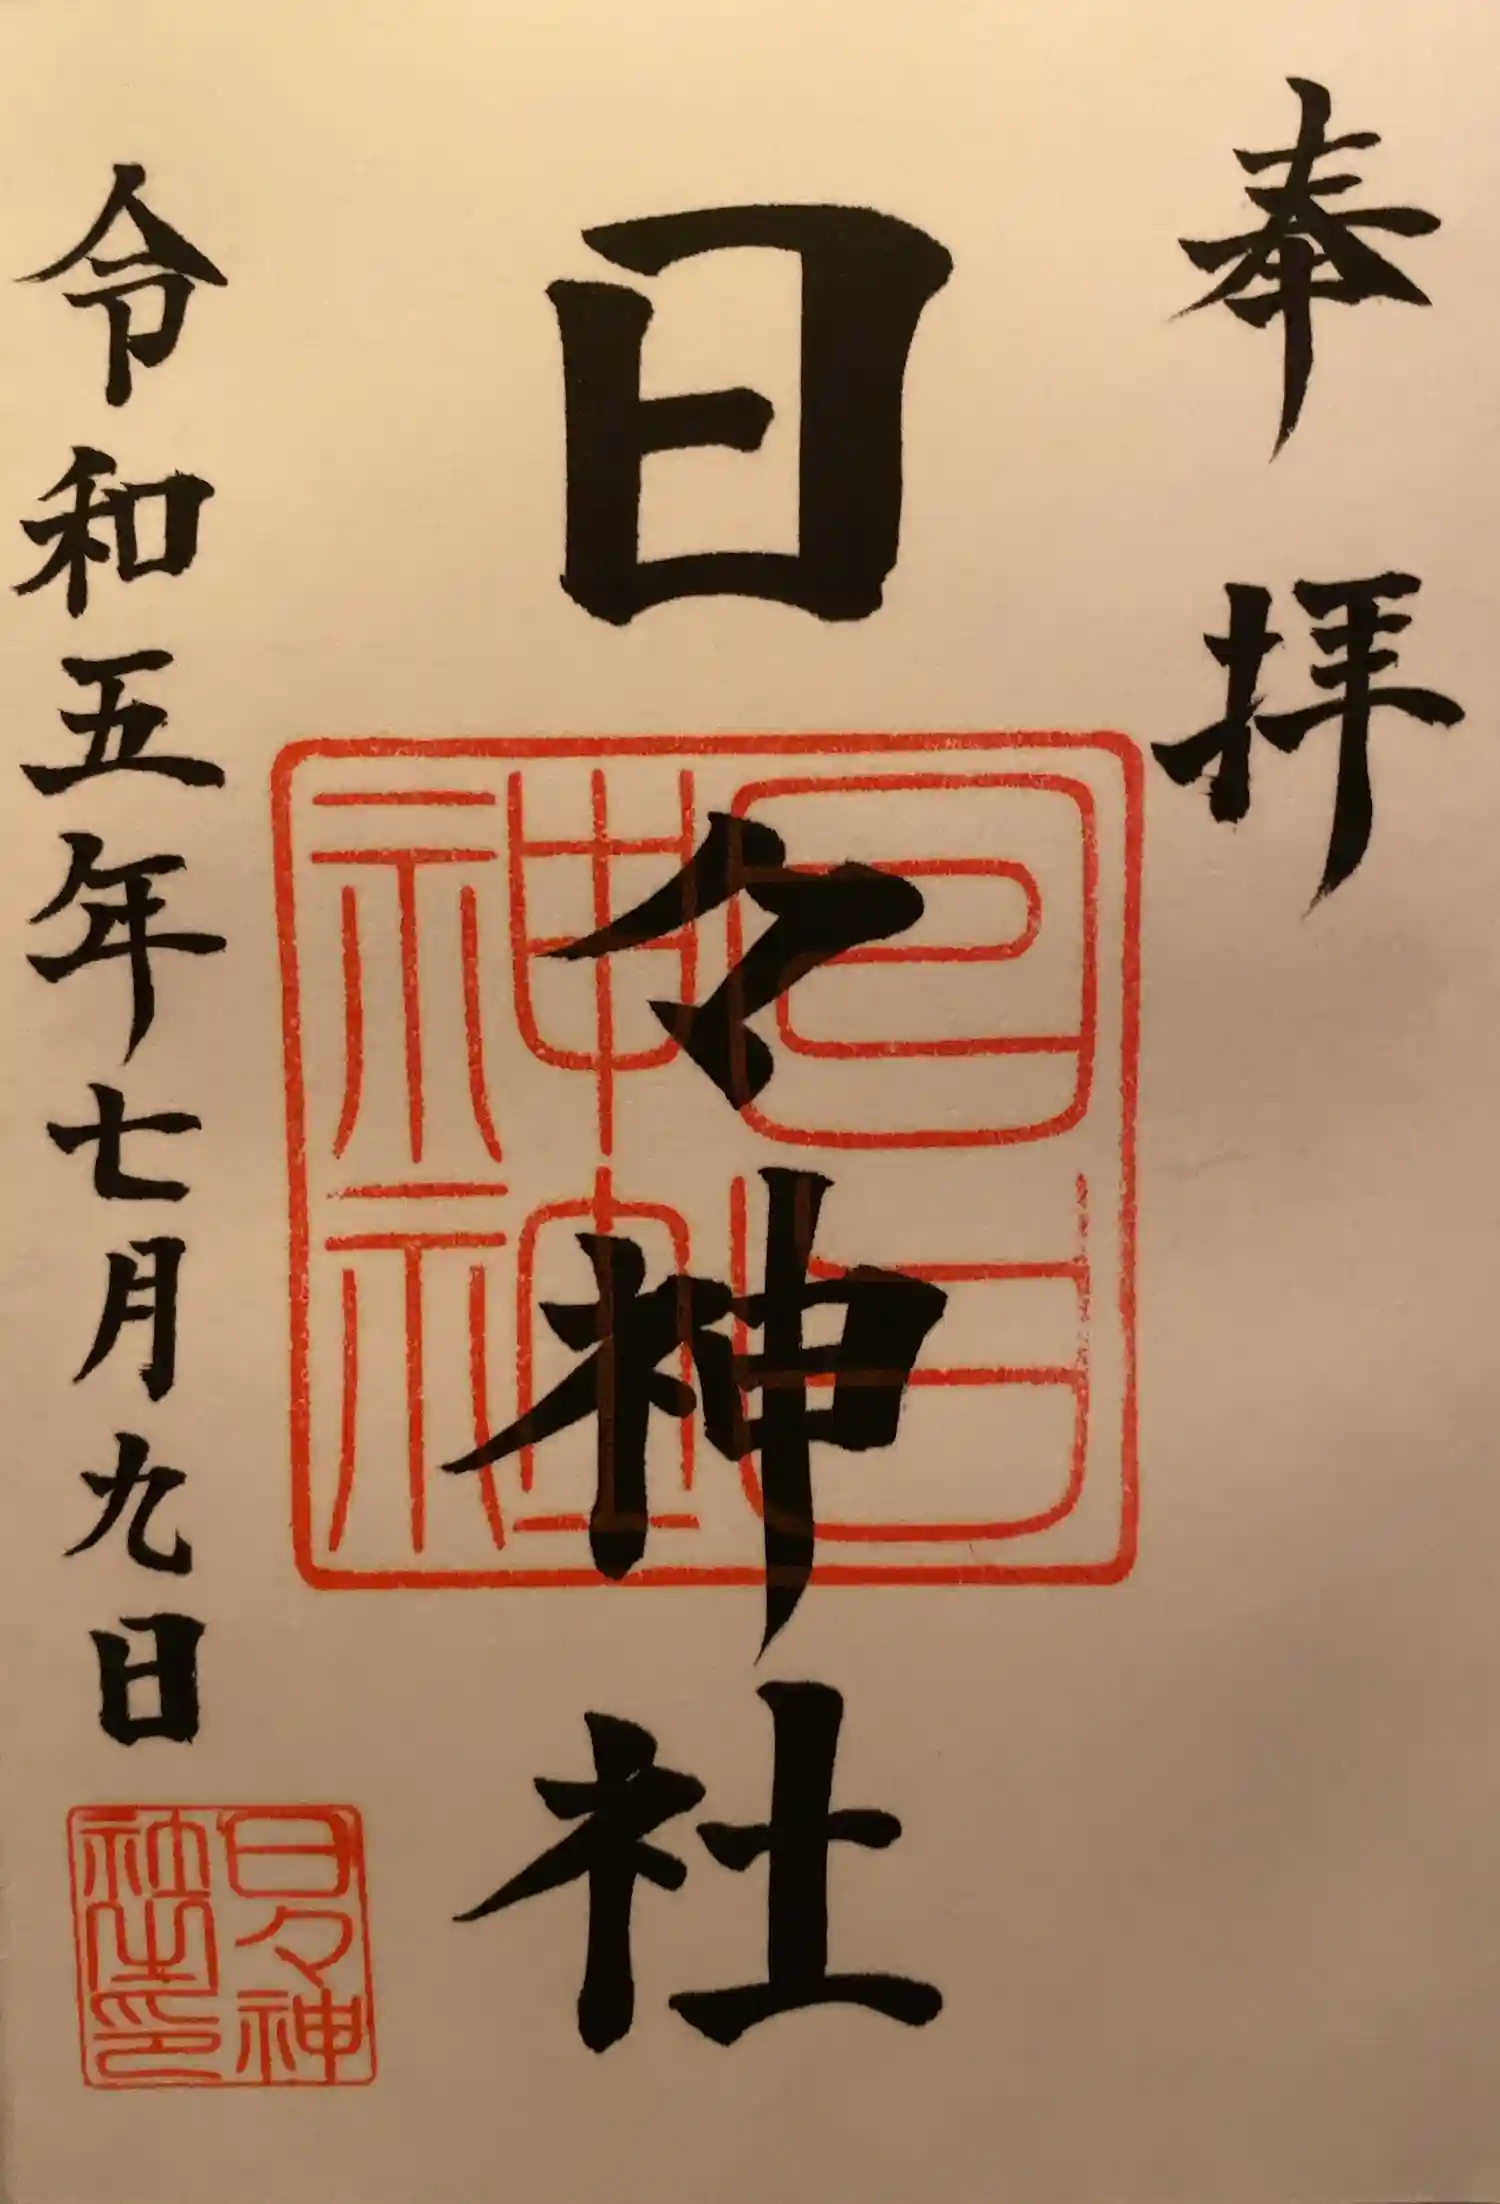 奉拝
日々神社
日日神社
令和五年七月九日
日々神社之印